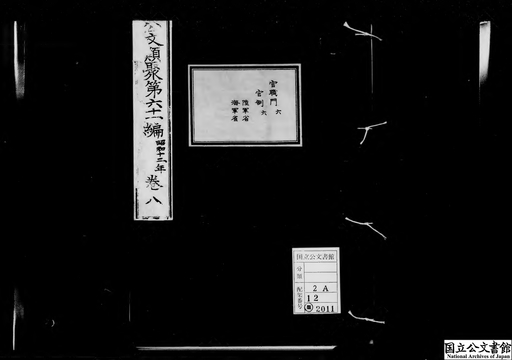 公文類聚第六十一編 昭和十二年 巻八
官職門 六
官制 六
陸軍省
海軍省
国立公文書館
分類
配架番号
2A
12
2011
国立公文書館
National Archives of Japan